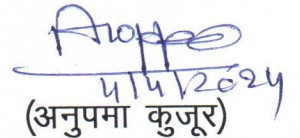 4/4/2024
(अनुपमा कुजूर)